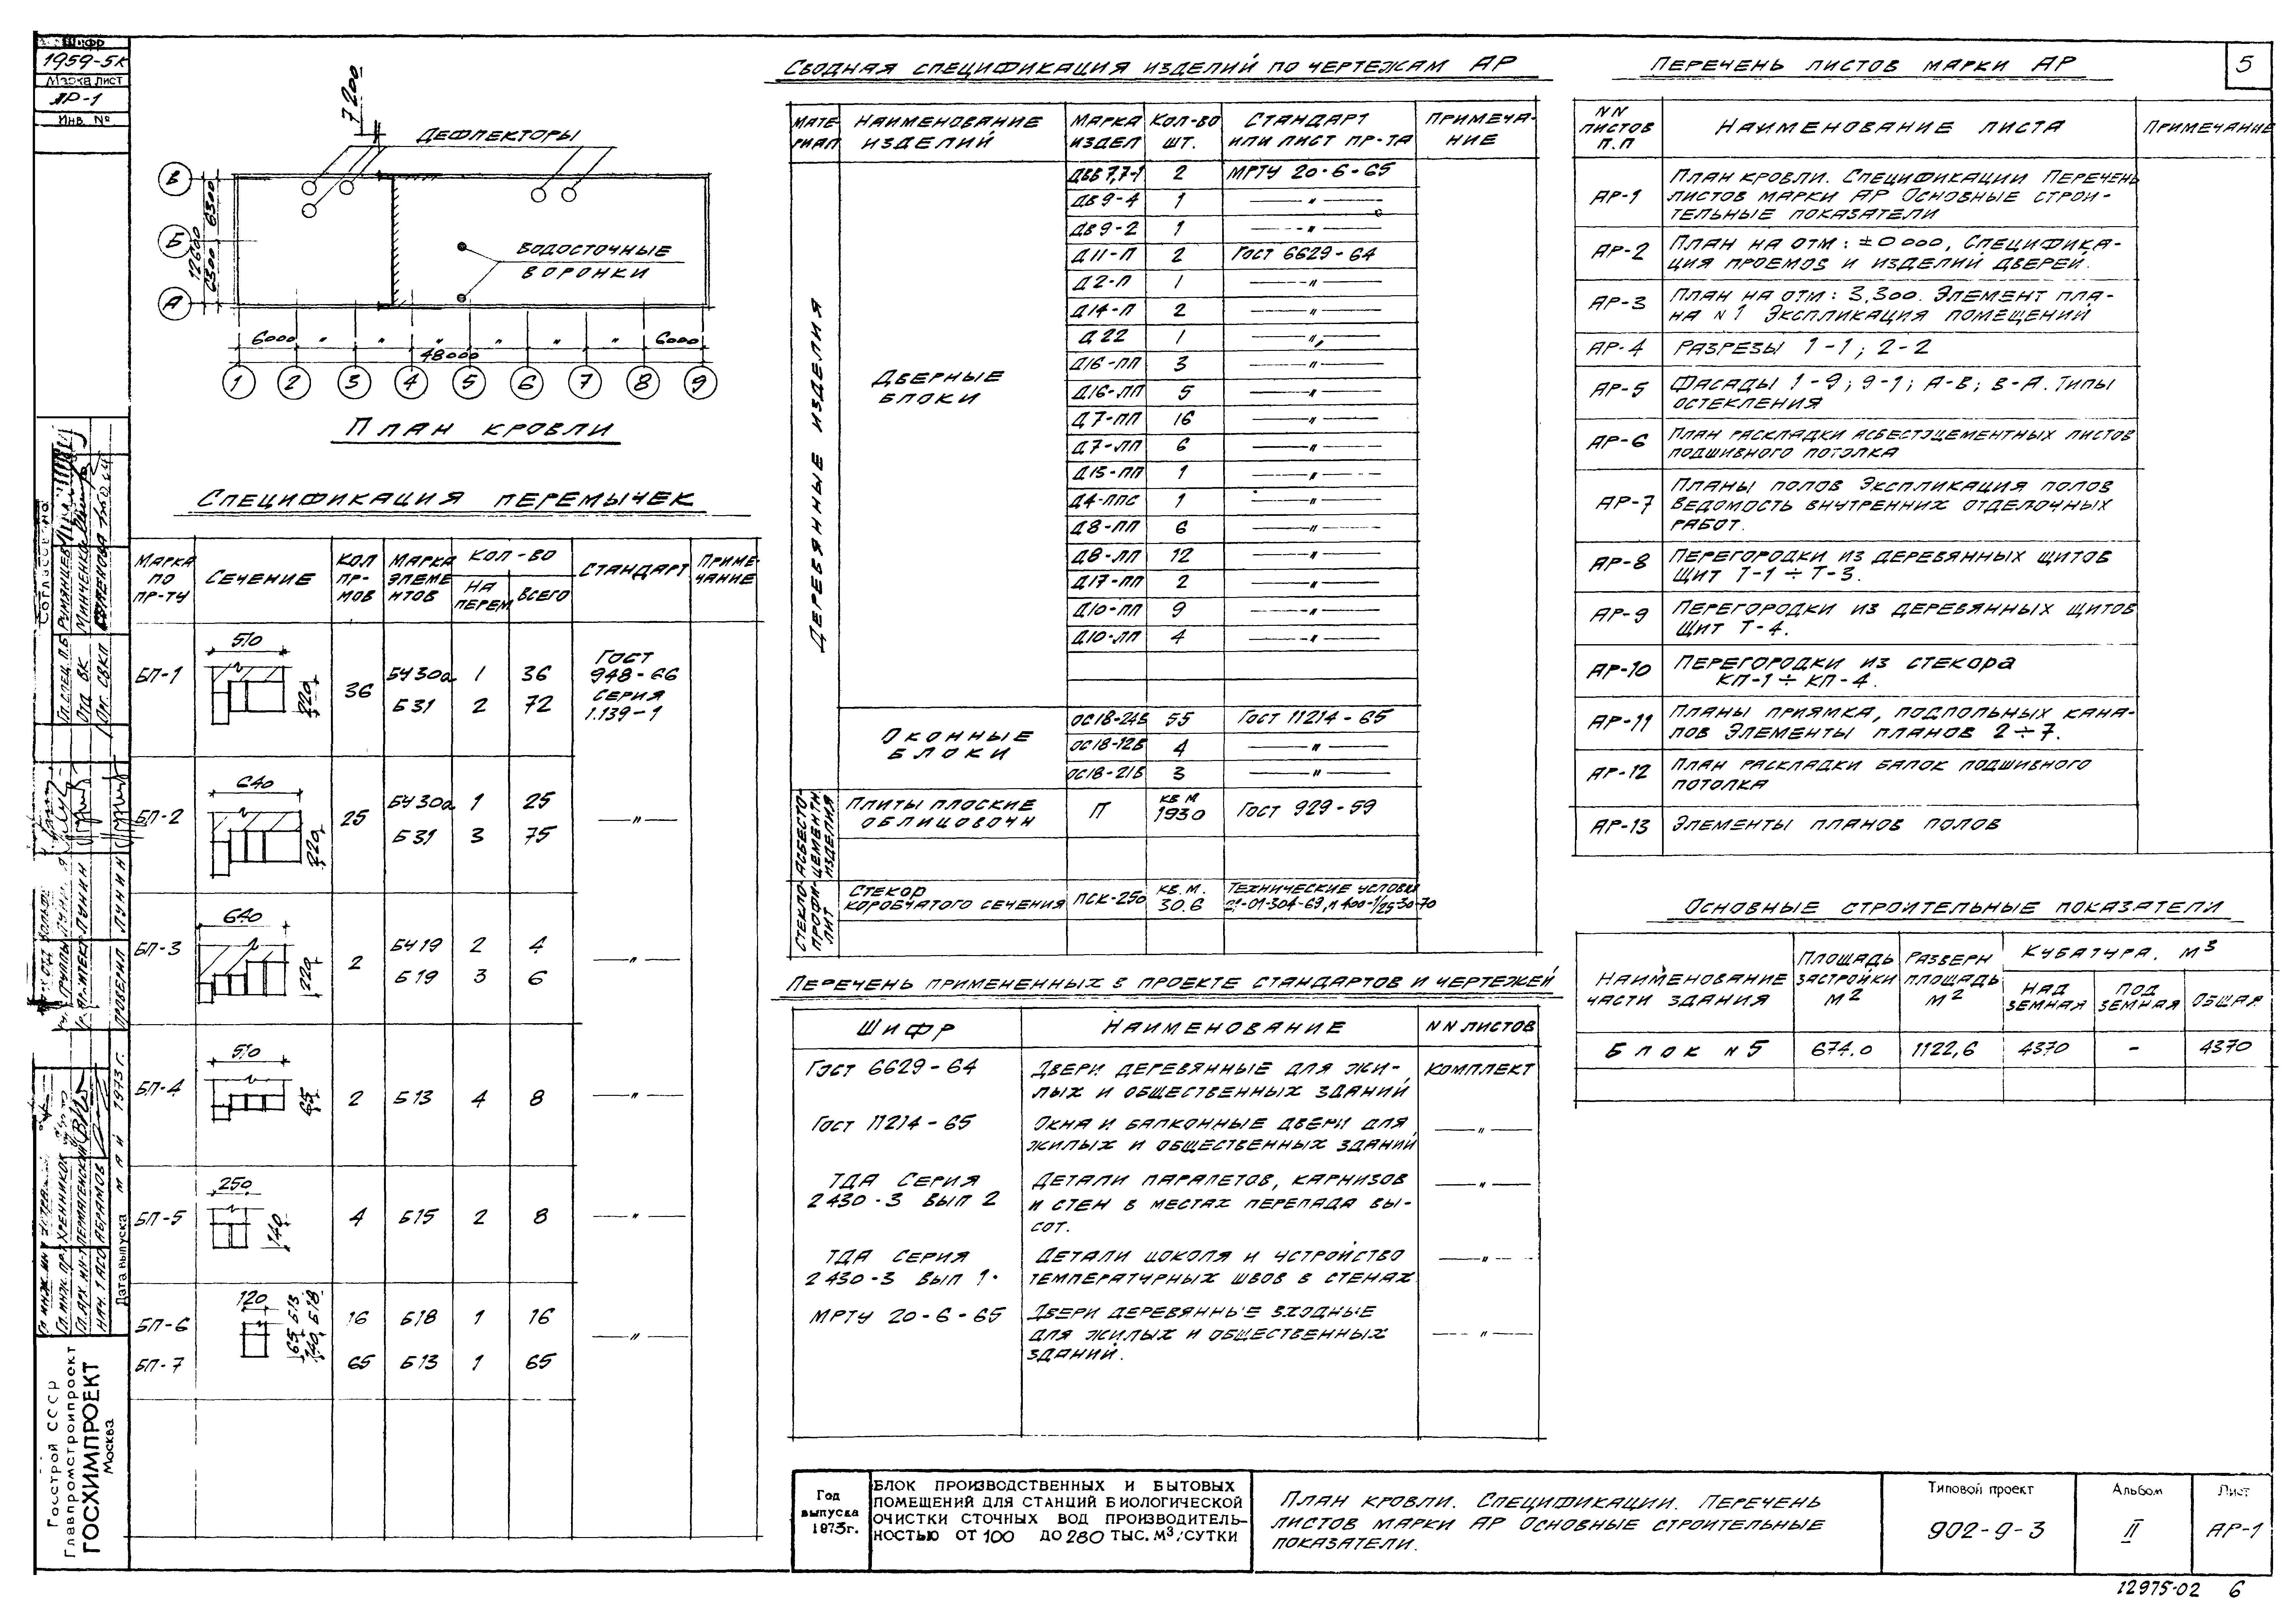 Шифр
1959-5К
Марка лист
АР-1
Инв. №
7200
Дефлекторы
В
Б
А
6300
6300
12600
Водосточные
воронки
6000 " " " " " " 6000
48000
1 2 3 4 5 6 7 8 9
План кровли
Спецификация перемычек
Марка по пр-ту | Сечение | Кол пр-мов | Марка элементов | Кол-во | Стандарт | Примечание
на перем | всего
БП-1 | 510 | 220 | 36 | БУ30а | 1 | 36 | Гост 948-66
Б31 | 2 | 72 | серия 1.139-1
БП-2 | 640 | 220 | 25 | БУ30а | 1 | 25 | — " —
Б31 | 3 | 75
БП-3 | 640 | 220 | 2 | БУ19 | 2 | 4 | — " —
Б19 | 3 | 6
БП-4 | 510 | 65 | 2 | Б13 | 4 | 8 | — " —
БП-5 | 250 | 140 | 4 | Б15 | 2 | 8 | — " —
БП-6 | 120 | 65 Б13 | 140 Б18 | 16 | Б18 | 1 | 16 | — " —
БП-7 | 65 | Б13 | 1 | 65
Сводная спецификация изделий по чертежам АР
Материал | Наименование изделий | Марка издел | Кол-во шт. | Стандарт или лист пр-та | Примечание
Деревянные изделия
Дверные
блоки
ДВВ7,7-1 | 2 | МРТУ 20-6-65
ДВ9-4 | 1 | — " —
ДВ9-2 | 1 | — " —
Д11-П | 2 | Гост 6629-64
Д2-П | 1 | — " —
Д14-П | 2 | — " —
Д22 | 1 | — " —
Д16-ПП | 3 | — " —
Д16-ЛП | 5 | — " —
Д7-ПП | 16 | — " —
Д7-ЛП | 6 | — " —
Д15-ПП | 1 | — " —
Д4-ППС | 1 | — " —
Д8-ПП | 6 | — " —
Д8-ЛП | 12 | — " —
Д17-ПП | 2 | — " —
Д10-ПП | 9 | — " —
Д10-ЛП | 4 | — " —
Оконные
блоки
ОС18-24Б | 55 | Гост 11214-65
ОС18-12Б | 4 | — " —
ОС18-21Б | 3 | — " —
Асбестоцементн изделия
Плиты плоские облицовочн | П | кв м 1930 | Гост 929-59
Стеклопрофилит
Стекор коробчатого сечения | ПСК-250 | кв.м. 30.6 | Технические условия
Перечень примененных в проекте стандартов и чертежей
Шифр | Наименование | NN листов
Гост 6629-64 | Двери деревянные для жи- | комплект
лых и общественных зданий
Гост 11214-65 | Окна и балконные двери для | — " —
жилых и общественных зданий
ТДА Серия | Детали парапетов, карнизов | — " —
2430-3 вып 2 | и стен в местах перепада вы-
сот.
ТДА серия | Детали цоколя и устройство | — " —
2430-3 вып 1. | температурных швов в стенах
МРТУ 20-6-65 | Двери деревянные входные
для жилых и общественных | — " —
зданий.
Перечень листов марки АР
5
NN листов п.п | Наименование листа | Примечание
АР-1 | План кровли. Спецификации Перечень
листов марки АР Основные строи-
тельные показатели
АР-2 | План на отм: ±0000, Специфика-
ция проемов и изделий дверей.
АР-3 | План на отм: 3,300. Элемент пла-
на N1 Экспликация помещений
АР-4 | Разрезы 1-1; 2-2
АР-5 | Фасады 1-9; 9-1; А-В; В-А. Типы
остекления
АР-6 | План раскладки асбестоцементных листов
подшивного потолка
АР-7 | Планы полов Экспликация полов
Ведомость внутренних отделочных
работ.
АР-8 | Перегородки из деревянных щитов
Щит Т-1÷Т-3.
АР-9 | Перегородки из деревянных щитов
Щит Т-4.
АР-10 | Перегородки из стекора
КП-1÷КП-4.
АР-11 | Планы приямка, подпольных кана-
лов Элементы планов 2÷7.
АР-12 | План раскладки балок подшивного
потолка
АР-13 | Элементы планов полов
Основные строительные показатели
Наименование части здания | Площадь застройки м2 | Разверн площадь м2 | Кубатура. м3
Надземная | Подземная | Общая
Блок N5 | 674.0 | 1122,6 | 4370 | - | 4370
Согласовано
Гл. спец. П.Б. Румянцев
Отд ВК Минченко
Отд. СВКП
Проверил Лунин
Гл. инж. пр. Хренников
Нач. 1 АСО Абрамов
Дата выпуска май 1973 г.
Госстрой СССР
Главпромстройпроект
ГОСХИМПРОЕКТ
Москва
Год
выпуска
1973г.
БЛОК ПРОИЗВОДСТВЕННЫХ И БЫТОВЫХ
ПОМЕЩЕНИЙ ДЛЯ СТАНЦИЙ БИОЛОГИЧЕСКОЙ
ОЧИСТКИ СТОЧНЫХ ВОД ПРОИЗВОДИТЕЛЬ-
НОСТЬЮ ОТ 100 ДО 280 ТЫС. М3/СУТКИ
План кровли. Спецификации. Перечень
листов марки АР Основные строительные
показатели.
Типовой проект
902-9-3
Альбом
II
Лист
АР-1
12975-02 6